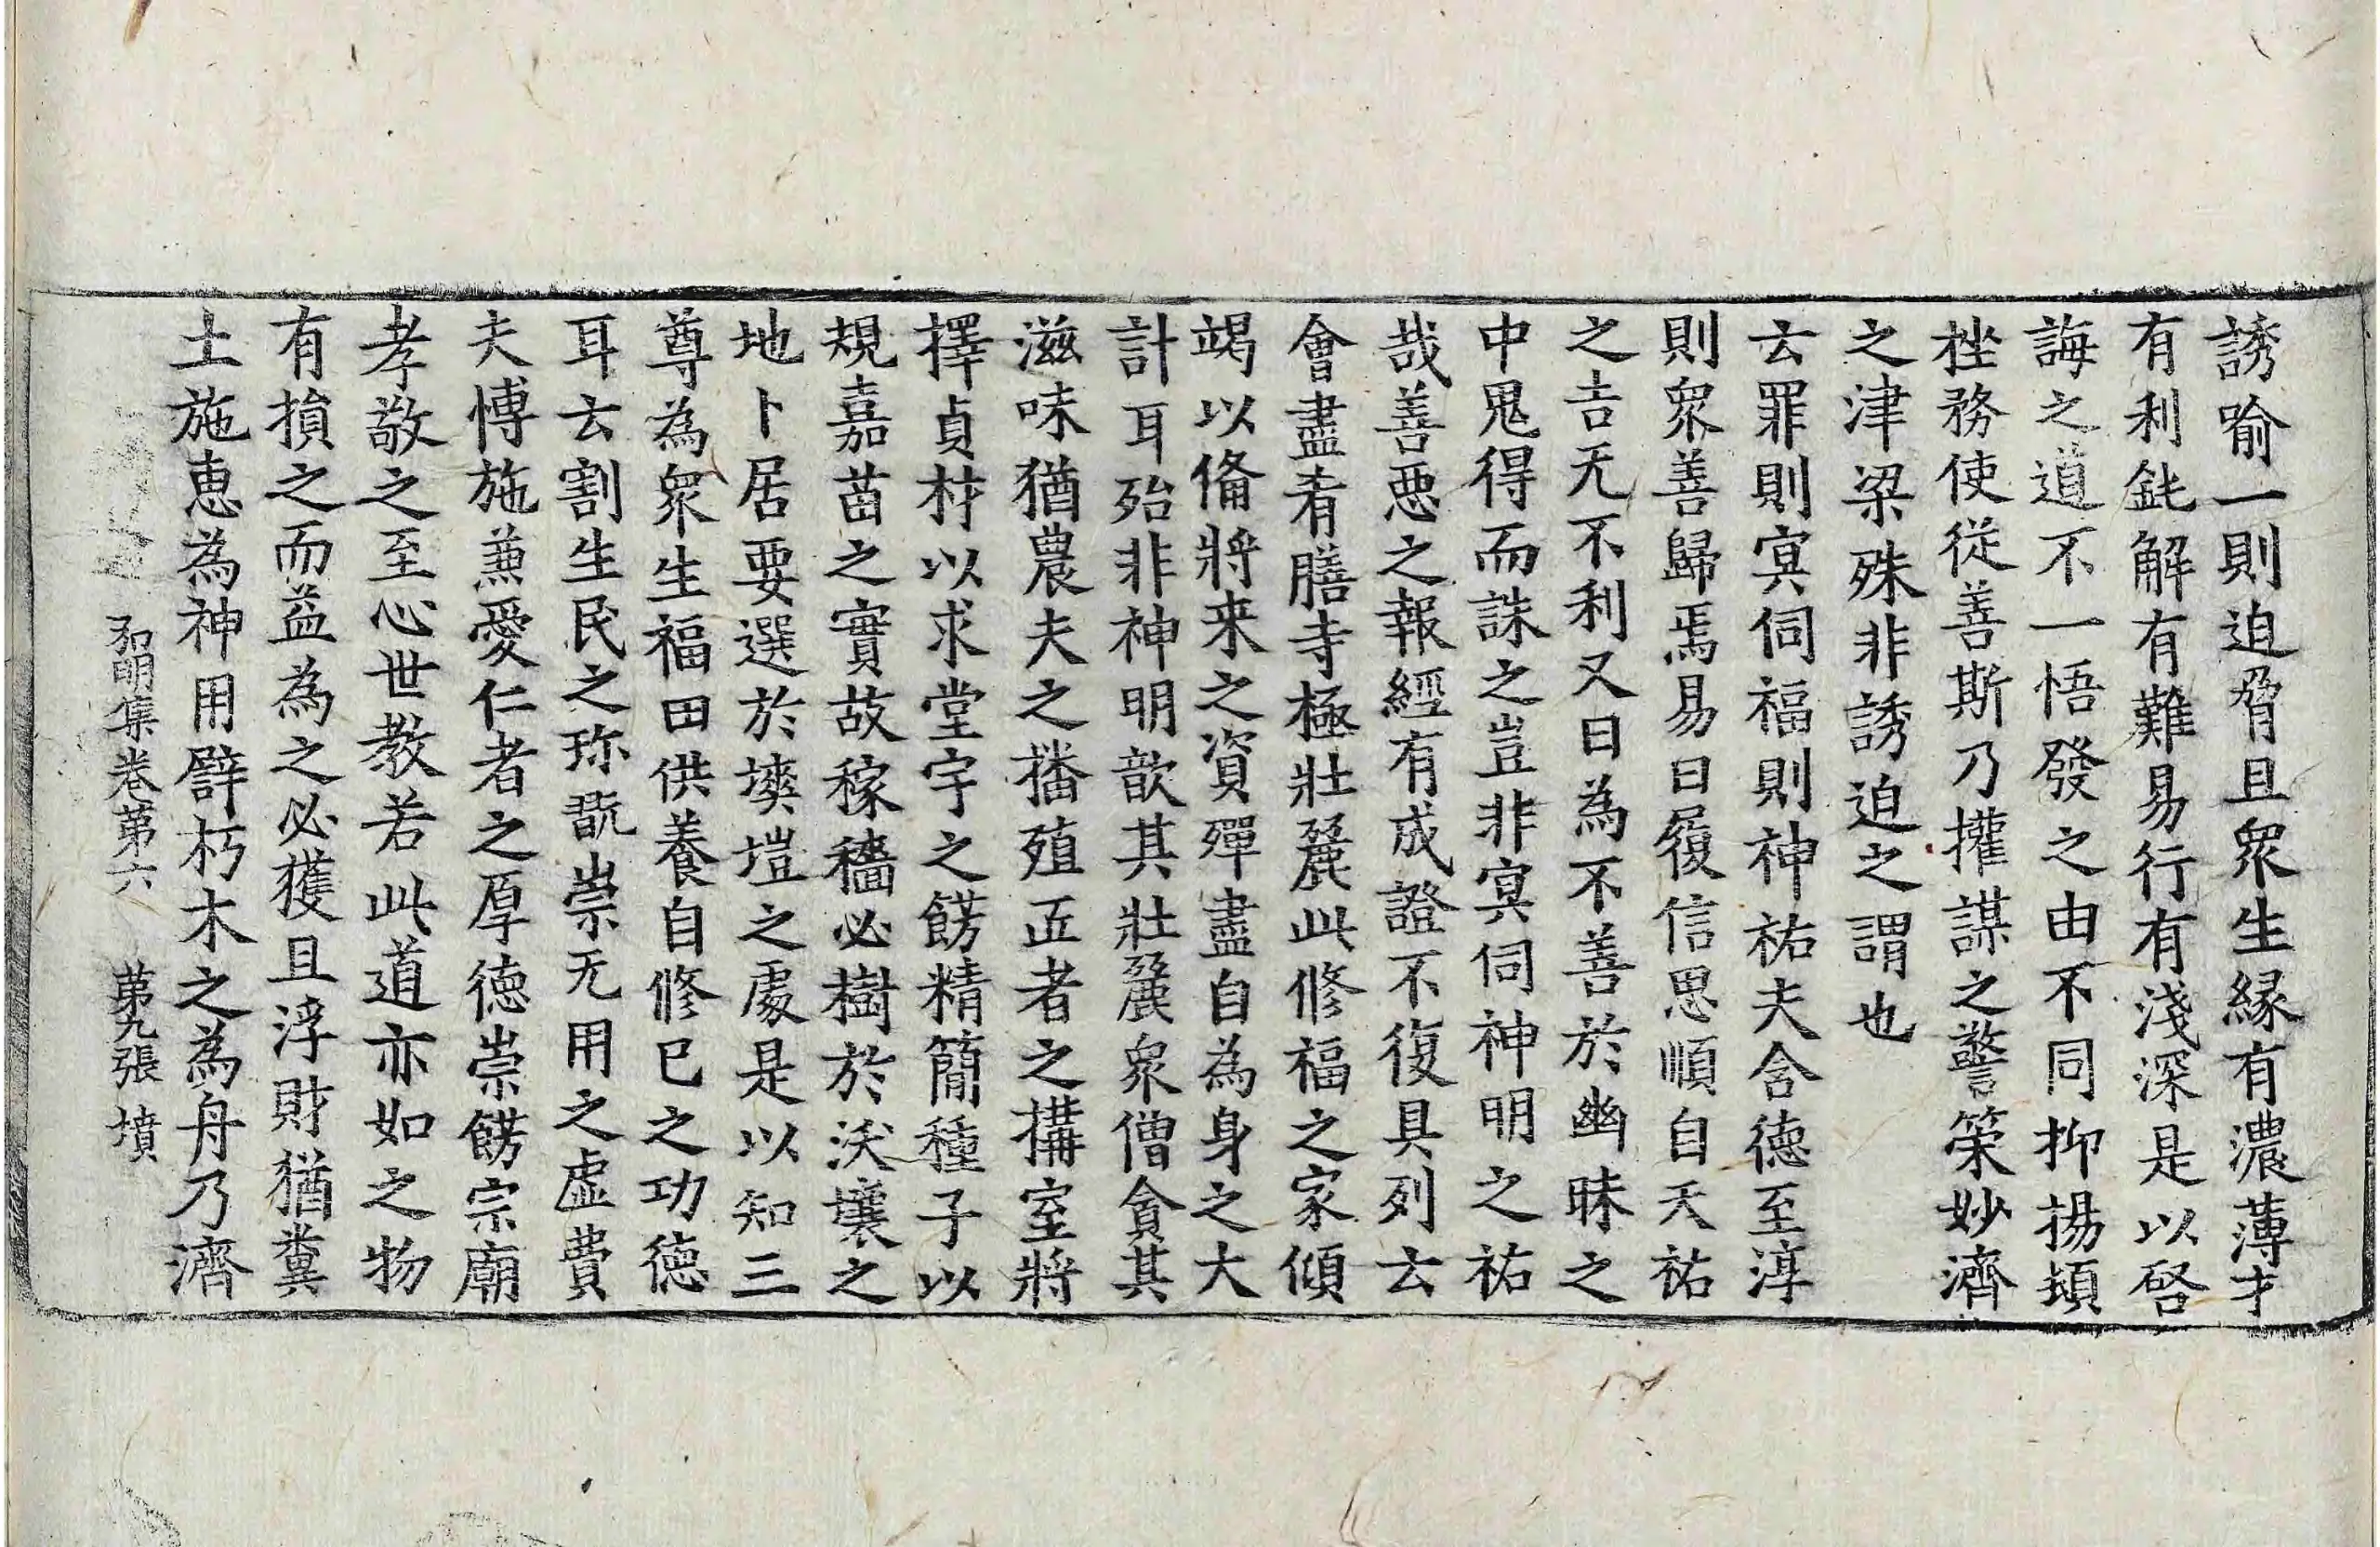 誘喻一則迫脅且衆生縁有濃薄才
有利鈍解有難易行有淺深是以啓
誨之道不一悟發之由不同抑揚頓
挫務使從善斯乃權謀之警策妙濟
之津梁殊非誘迫之謂也
云罪則冥伺福則神祐夫含德至淳
則衆善歸焉易曰履信思順自天祐
之吉无不利又曰為不善於幽昧之
中鬼得而誅之豈非冥伺神明之祐
哉善惡之報經有成證不復具列云
會盡肴膳寺極壯麗此修福之家傾
竭以俻將来之資殫盡自為身之大
計耳殆非神明歆其壯麗衆僧貪其
滋味猶農夫之播殖匠者之搆室將
擇貞材以求堂宇之餝精簡種子以
規嘉苗之實故稼穡必樹於沃壤之
地卜居要選於塽塏之處是以知三
尊為衆生福田供養自修已之功德
耳云割生民之珎翫崇无用之虛費
夫博施兼愛仁者之厚德崇餝宗廟
孝敬之至心世教若此道亦如之物
有損之而益為之必獲且浮財猶糞
土施恵為神用譬朽木之為舟乃濟
弘明集卷第六　第九張　墳